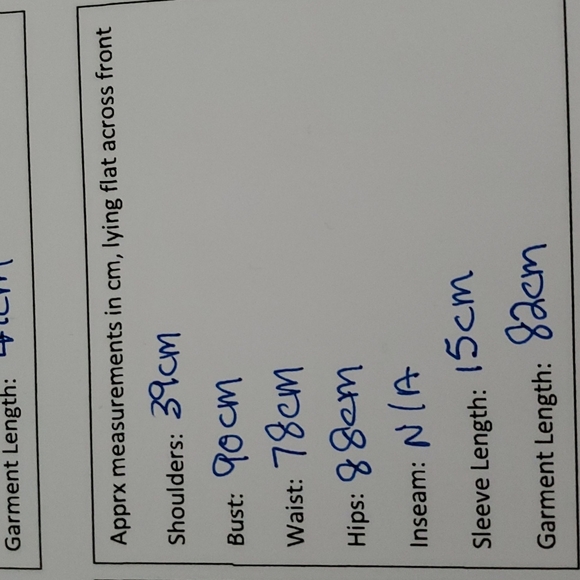 Garment Length:
Apprx measurements in cm, lying flat across front
Shoulders: 39cm
Bust: 90cm
Waist: 78cm
Hips: 88cm
Inseam: N/A
Sleeve Length: 15cm
Garment Length: 82cm